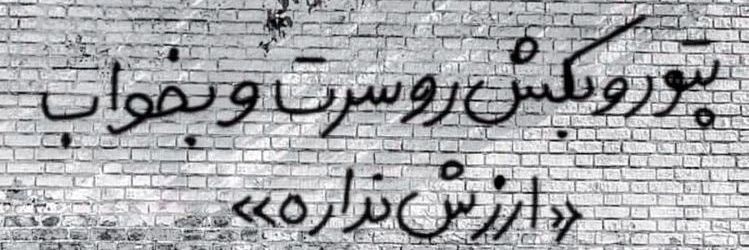 پتو رو بکش رو سرت و بخواب
«ارزش نداره»